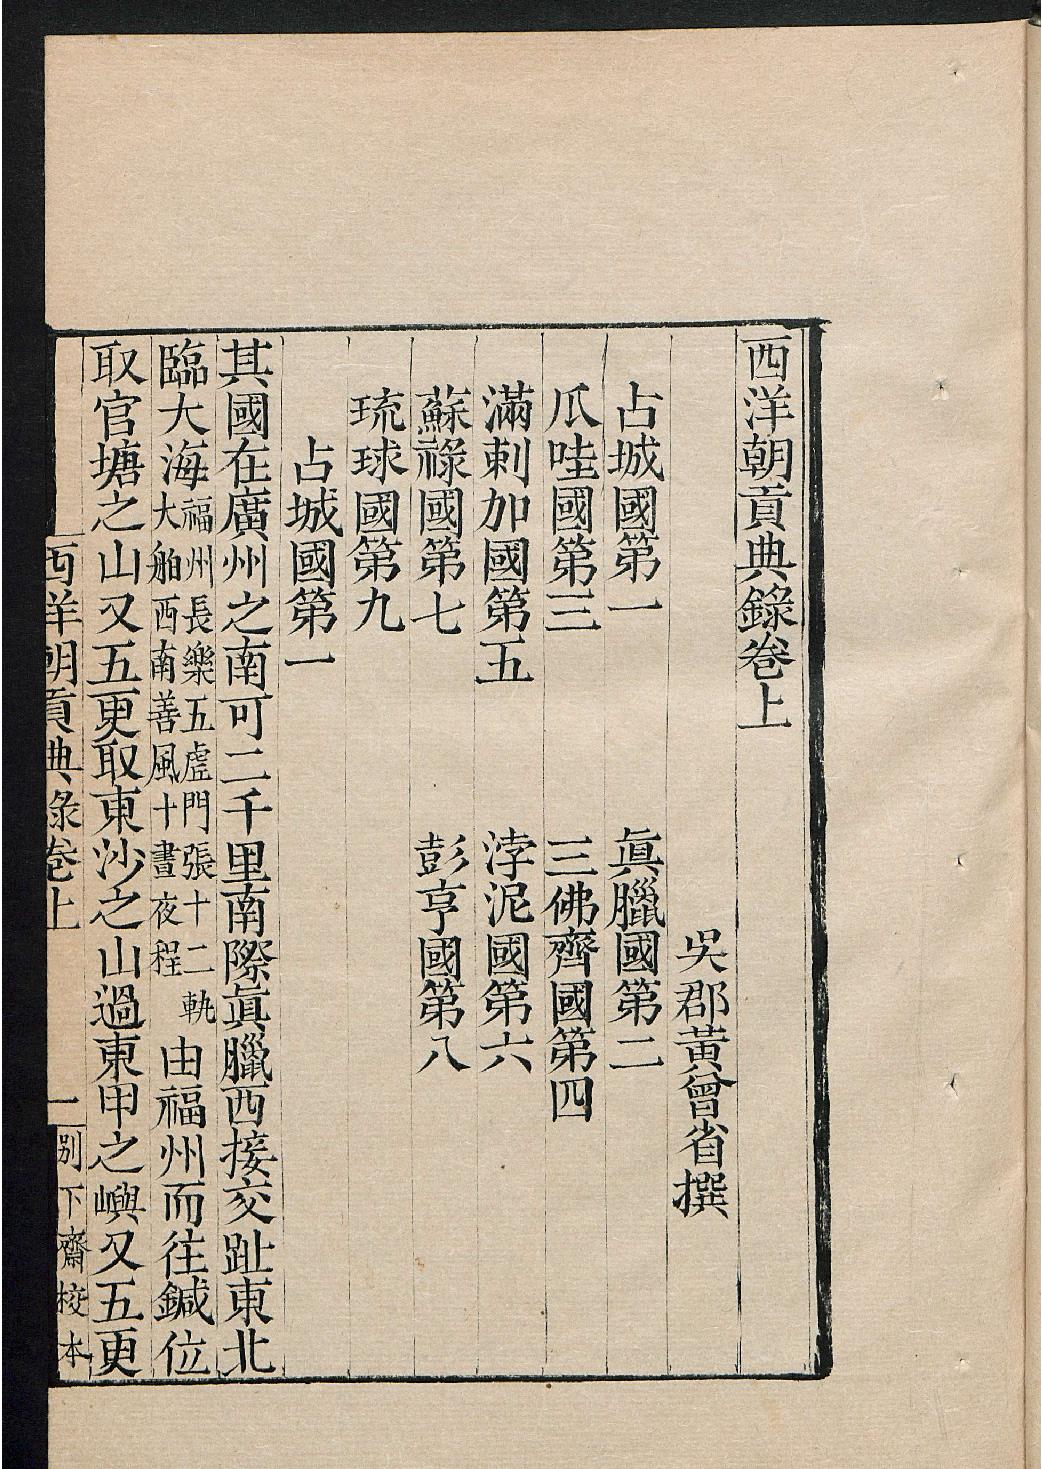 西洋朝貢典錄卷上
吳郡黃曾省撰
占城國第一　真臘國第二
爪哇國第三　三佛齊國第四
滿剌加國第五　浡泥國第六
蘇祿國第七　彭亨國第八
琉球國第九
占城國第一
其國在廣州之南可二千里南際眞臘西接交趾東北
臨大海福州長樂五虛門張十二𠆩大舶西南善風十晝夜程由福州而往鍼位
取官塘之山又五更取東沙之山過東甲之嶼又五更
西洋朝貢典錄卷上　一　別下齋校本